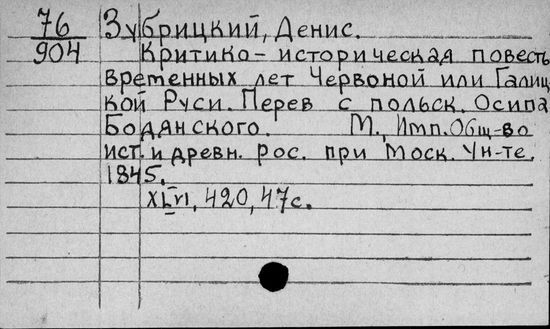 76
904
Зубрицкий, Денис.
Критико-историческая повесть
временных лет Червоной или Галиц
кой Руси. Перев с польск. Осипа
Бодянского. М., Имп. Общ-во
ист. и древн. рос. при Моск. Ун-те.
1845.
XLVI, 420, 47 с.